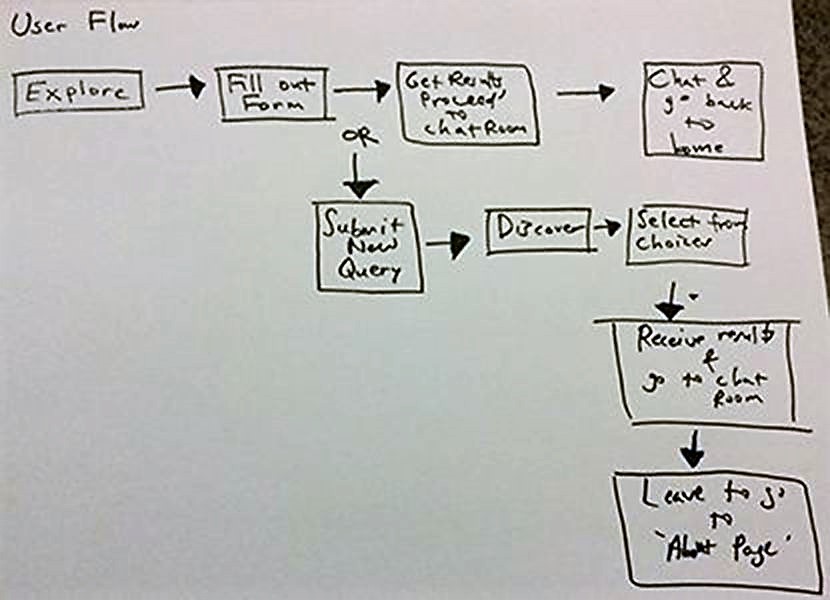 User Flow
Explore
Fill out
Form
Get Results
Proceed
to
chat Room
Chat &
go back
to
home
OR
Submit
New
Query
Discover
Select from
choices
Receive results
&
go to chat
Room
Leave to go
to
'About Page'